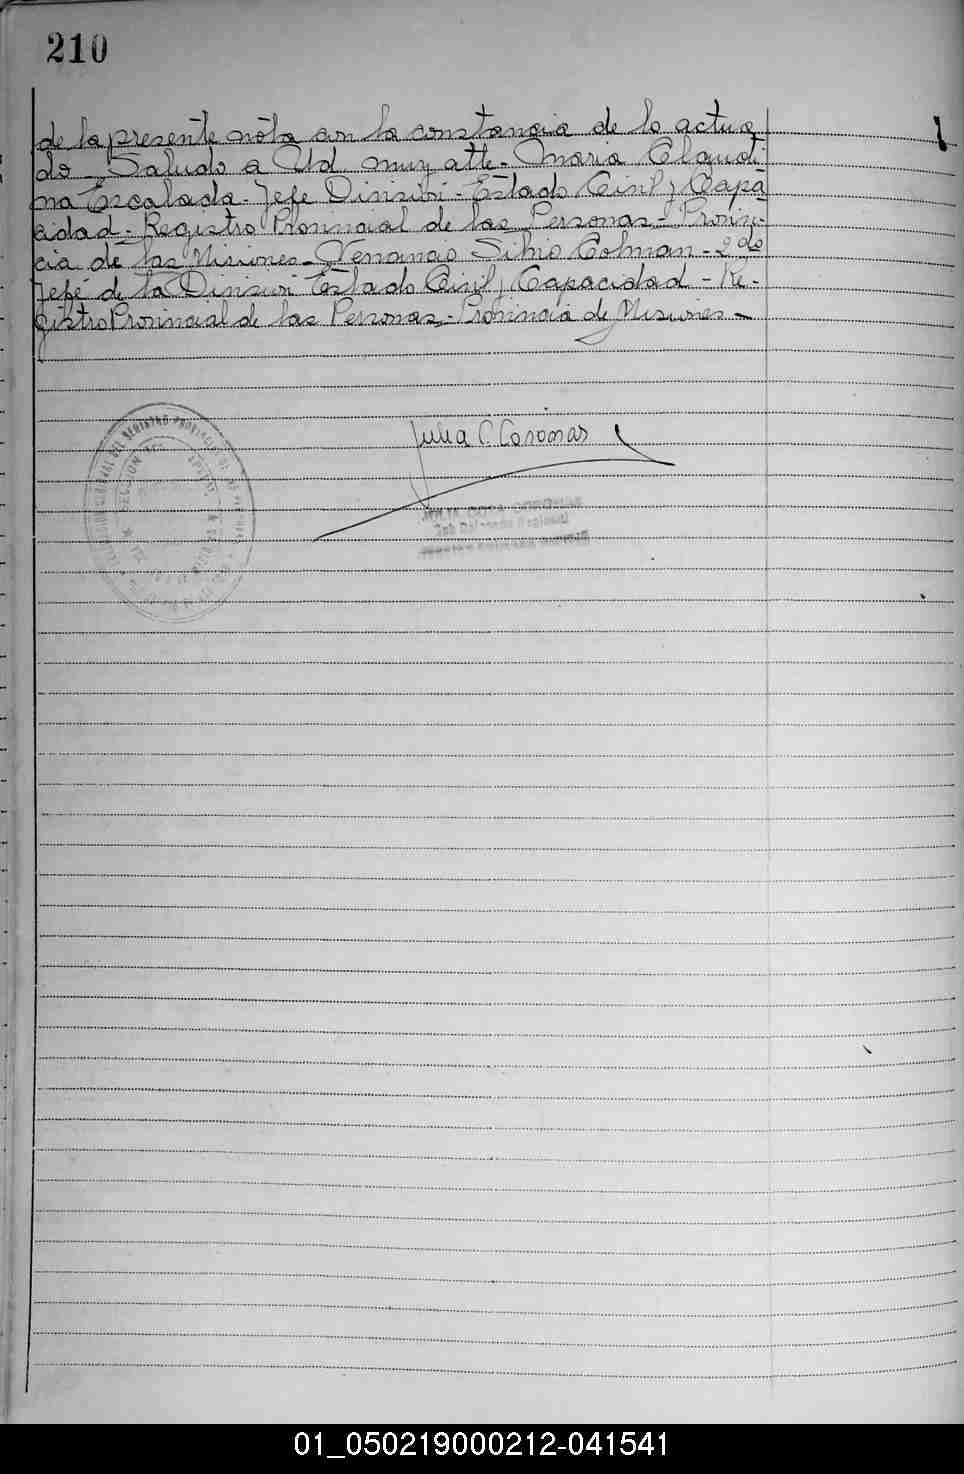 210
de la presente nota con la constancia de lo actua
do - Saludo a Ud muy atte - Maria Claudi
na Escalada - Jefe Division - Estado Civil y Capa
cidad - Registro Provincial de las Personas - Provin-
cia de las Misiones - Venancio Silvio Colman - 2do
Jefe de la Division Estado Civil y Capacidad - Re-
gistro Provincial de las Personas - Provincia de Misiones -
Julia C.
01_050219000212-041541